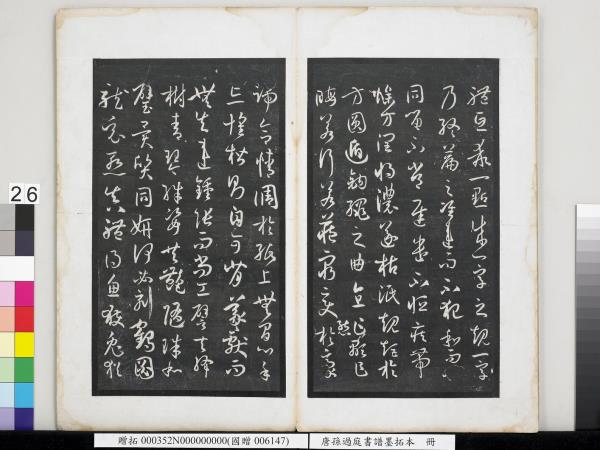 體互乖一點成一字之規一字
乃終篇之准違而不犯和而不
同留不常遲遣不恒疾帶
燥方潤將濃遂枯泯規矩於
方圓遁鉤繩之曲直乍顯乍
晦若行若藏窮變態於豪
端合情調於紙上無間心手
忘懷楷則自可背羲獻而
無失違鍾張而尚工譬夫絳
樹青琴殊姿共豔隋珠和
璧異質同妍何必刻鶴圖
龍竟慚真體得魚獲兔猶
26
贈拓 000352N000000000(國贈 006147)
唐孫過庭書譜墨拓本 冊